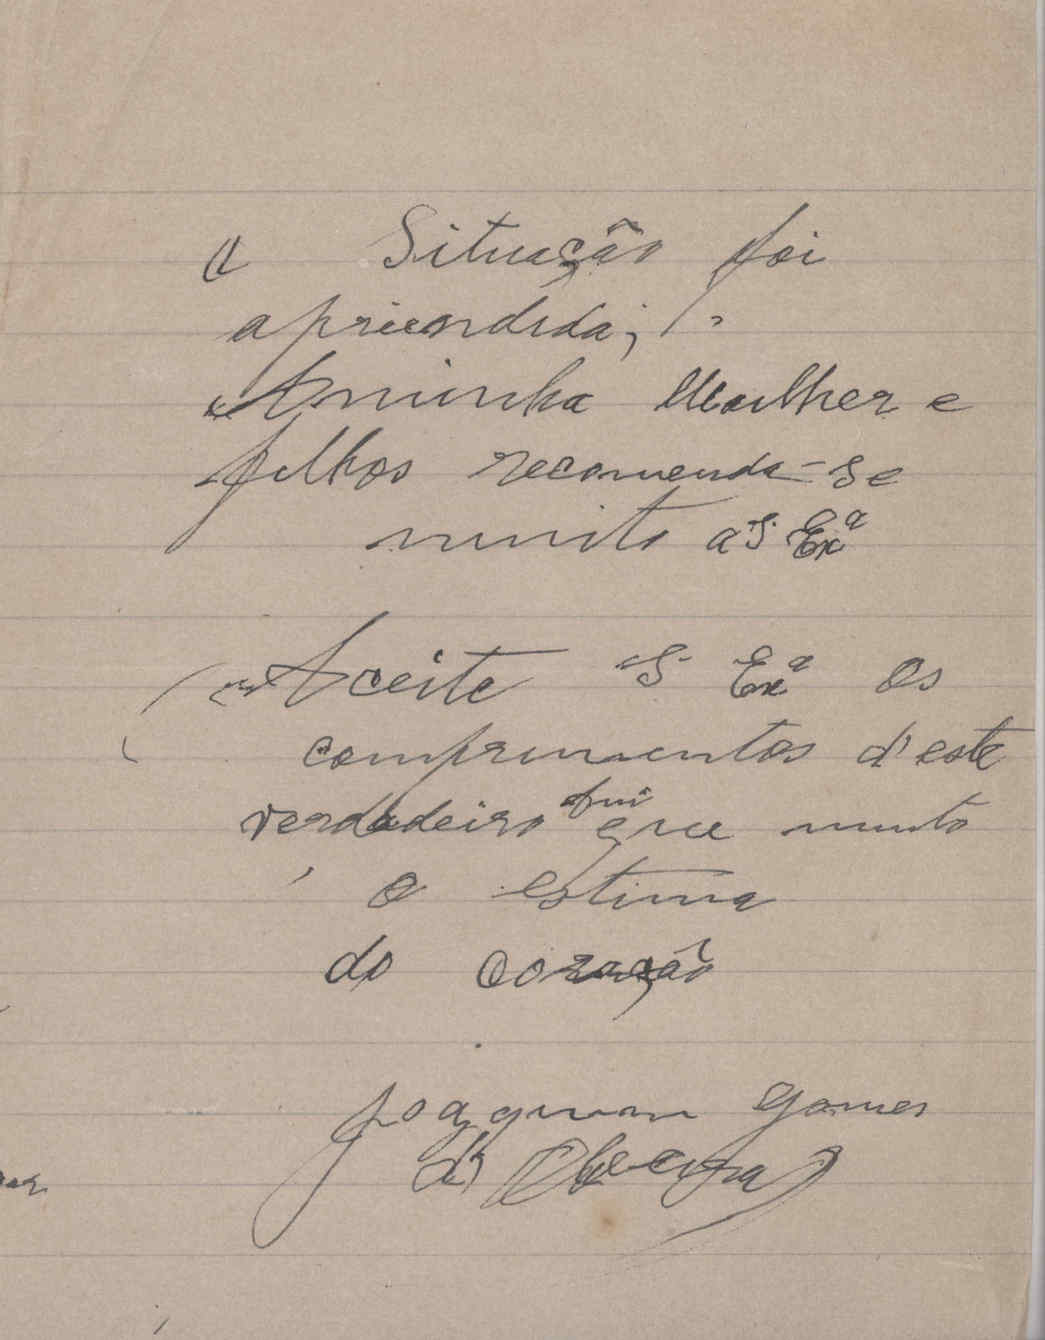 A Situação foi
aprieendida;
A minha Mulher e
filhos recomenda-se
muito a S. Exª
Aceite S. Exª os
comprimentos d'este
verdadeiro que muito
o estima
do coração
Joaquim Gomes
d'Oliveira